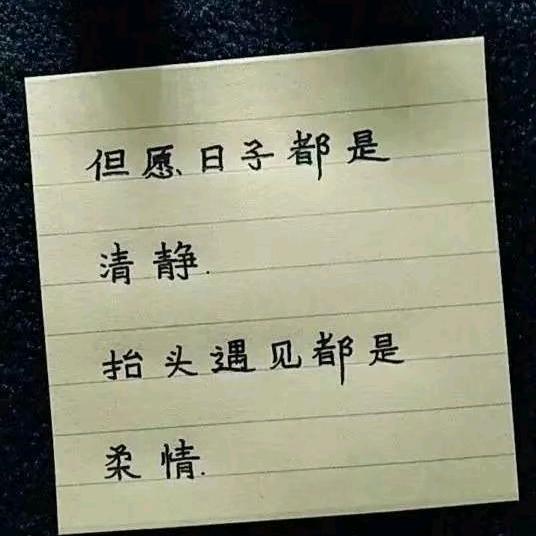 但愿日子都是
清静.
抬头遇见都是
柔情.